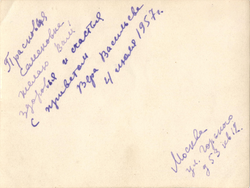 Семеновне
желаю Вам
здоровья и счастья
с приветом
Вера Васильева
4 июля 1957 г.
Москва
ул. Горького